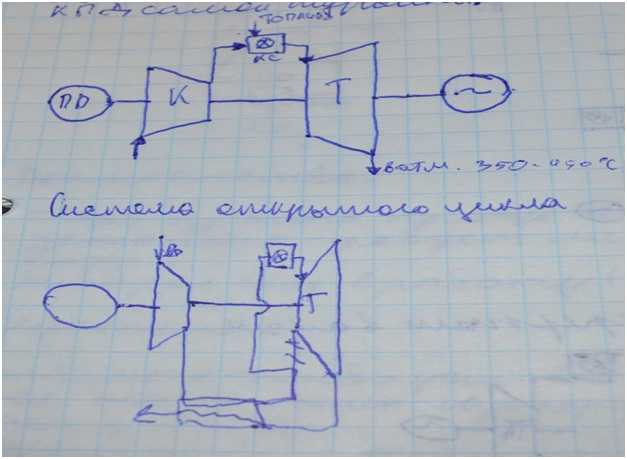 КПД самой турбины
топлива
КС
ПД
К
Т
~
в атм. 350-450°С
Система открытого цикла
Т